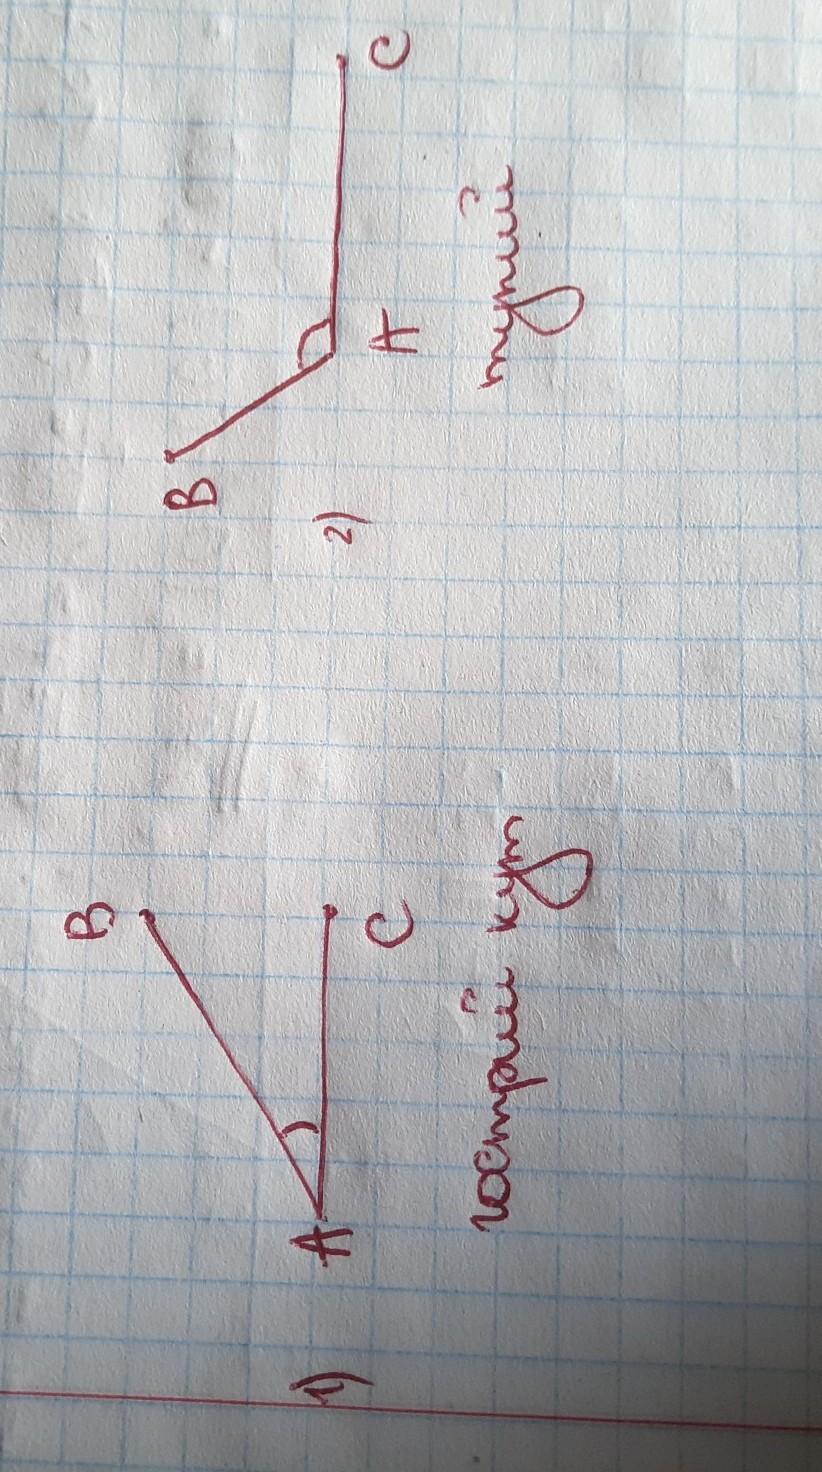 B
B
1)
A
C
2)
A
C
гострий кут
тупий